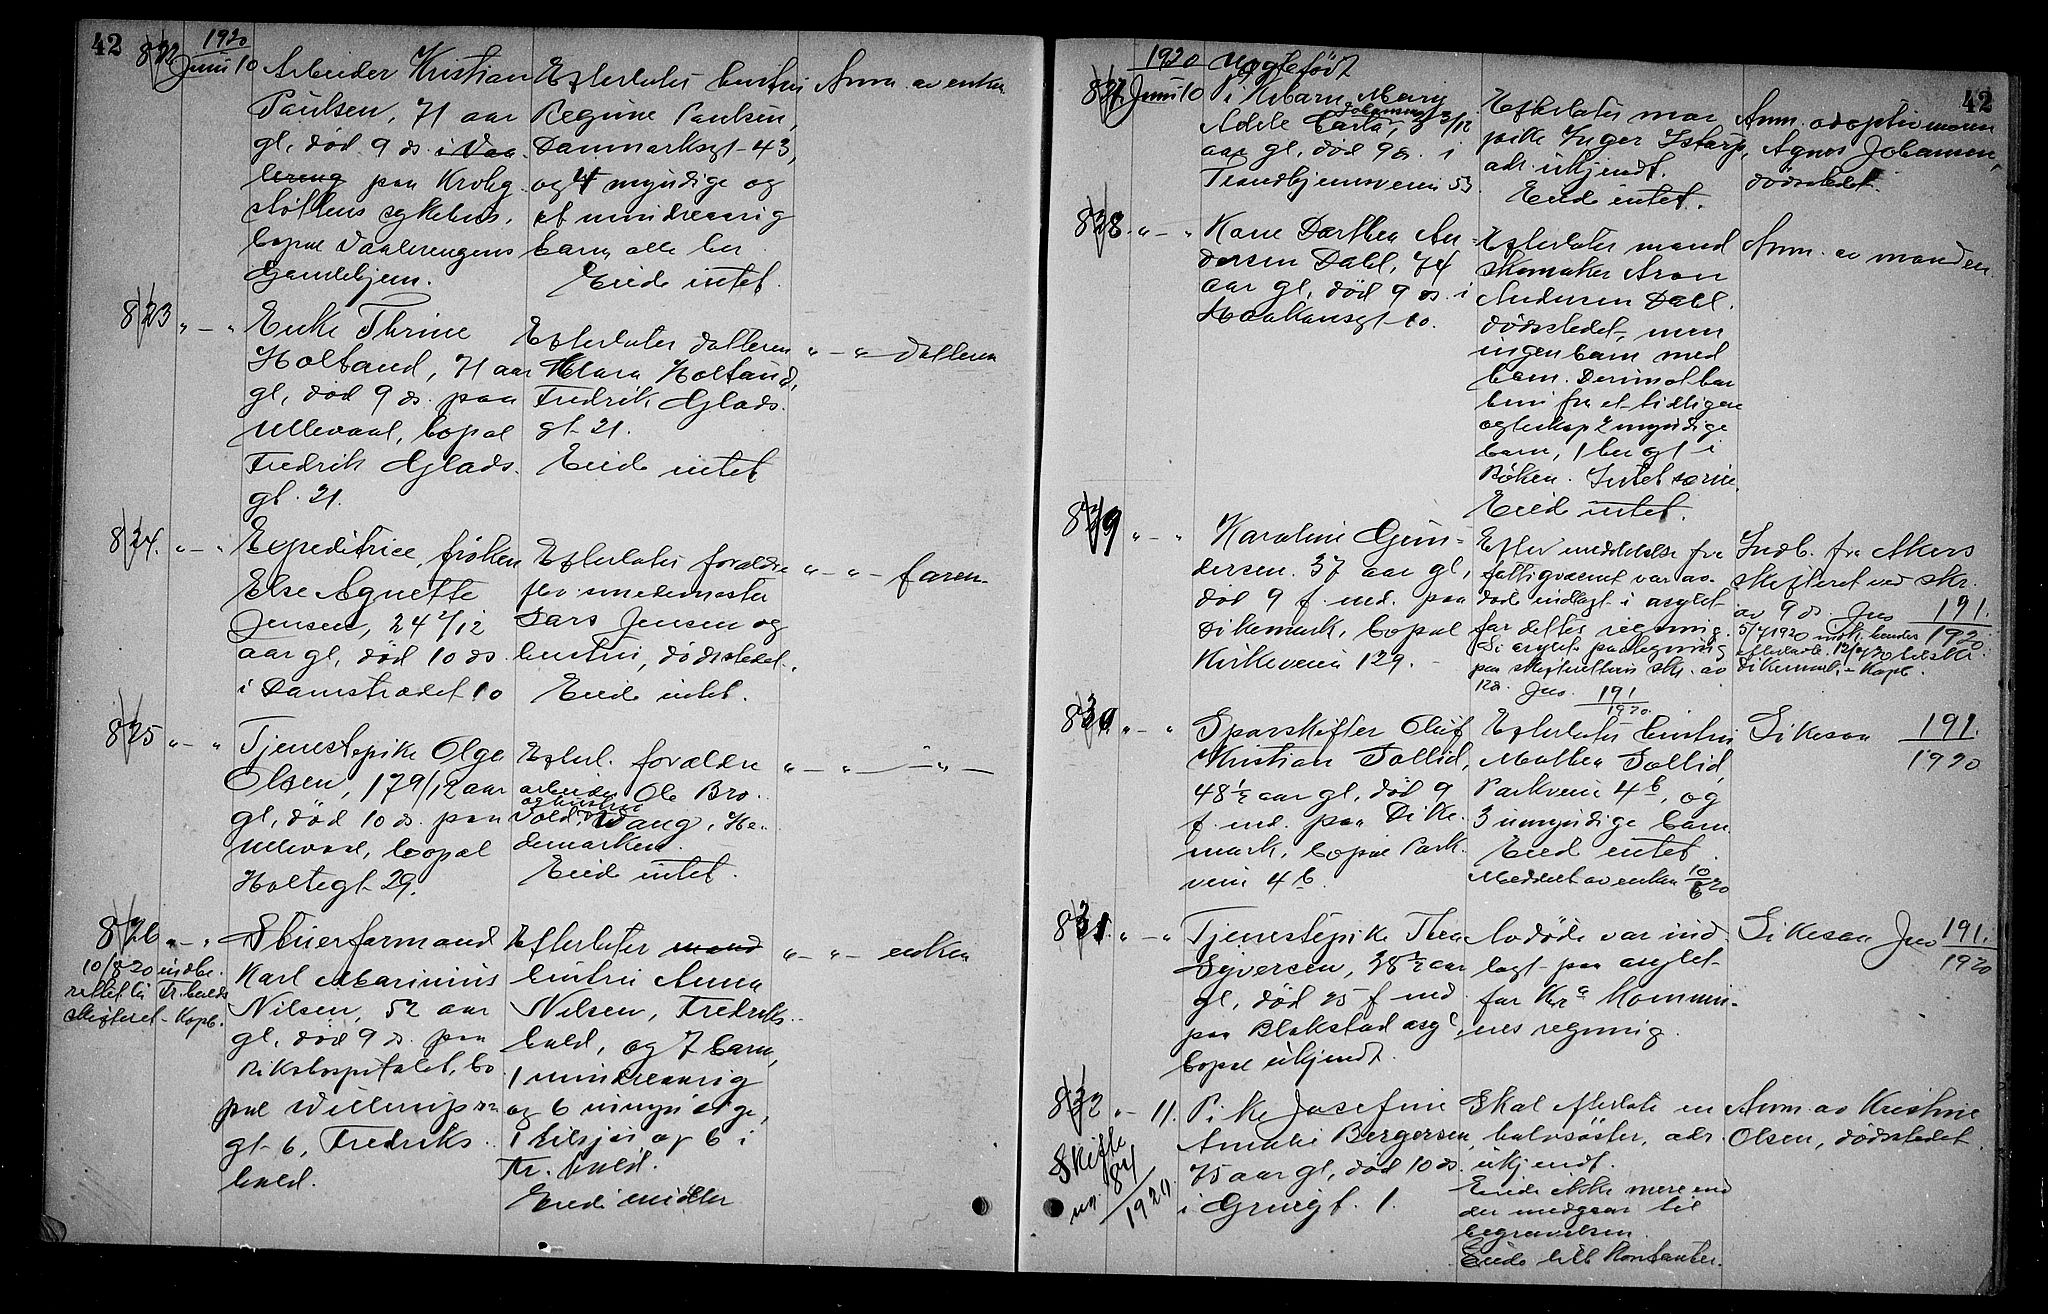 42
1920
822
Juni 10
Arbeider Kristian
Paulsen, 71 aar
gl, død 9 ds. i Vaa-
lereng paa Krohg-
støttens sykehus,
bopæl Vaalerengens
Gamlehjem.
Efterlater hustru
Regine Paulsen,
Danmarksgt. 43,
og 4 myndige og
et mindreaarig
barn, alle her
Eiede intet.
Anm. av enken
823 " — "
Enke Thrine
Holtand, 71 aar
gl, død 9 ds. paa
Ullevaal, bopæl
Fredrik Glads.
gt. 21.
Efterlater datteren
Klara Holtand,
Fredrik Glads.
gt. 21.
Eiede intet
" — " — datteren
824. " — "
Expeditrice, frøken
Else Agnette
Jensen, 24 2/12
aar gl, død 10 ds.
i Damstrædet 10
Efterlater forældre
Lars Jensen og
hustru, dødsstedet.
Eiede intet.
" — " — faren
825 " — "
Tjenestepike Olga
Olsen, 17 9/12 aar
gl, død 10 ds. paa
Ullevaal, bopæl
Holtegt. 29.
Efterl. forældre
arbeider Ole Bro-
og hustru
vold, Vang, He-
demarken.
Eiede intet.
" — " — " —
826 " — "
10/8 20 indbe-
rettet til Fr.halds
skifteret - Kopb.
Stuerformand
Karl Marinius
Nilsen, 52 aar
gl, død 9 ds. paa
Rikshospitalet, bo
pæl
gt. 6, Fredriks-
hald.
Efterlater mand
hustru Anna
Nilsen, Fredriks-
hald, og 7 barn,
1 mindreaarig
og 6 umyndige,
1 tilsjøs og 6 i
Fr. hald.
Eiede midler
" — " — enken
42
1920
827
Juni 10
Uegtefødt
Pikebarn Mary
Adele
Johansen
aar gl, død 9 ds. i
Trondhjemsveien 53.
Efterlater mor,
pike Inger Istarp,
adr. ukjendt.
Eiede intet.
Anm. adoptivmoren
Agnes Johansen,
dødsstedet.
828. " — "
Kane Dorthea An-
dersen Dahl, 74
aar gl, død 9 ds. i
Haakonsgt. 10.
Efterlater mand
skomaker Aron
Andersen Dahl.
dødsstedet, men
ingen barn med
ham. Derimot har
hun fra et tidligere
egteskap 2 myndige
barn, 1 her og 1 i
Røken. Intet særeie.
Eied intet.
Anm. av manden
829 " — "
Karoline Gun-
dersen. 37 aar gl,
død 9 f. md. paa
Dikemark, bopæl
Kirkeveien 129.
Efter meddelelse fra
fattigvæsenet var av-
døde indlagt i asylet
for dettes regning.
Se asylets paategning
paa skifterettens skr. av
12ds. Jno. 191
1920.
Indb. fra Akers
skifteret ved skr.
av 9 ds. Jno 191.
1920
5/7 1920 indk. hendes
efterladte. 12/7 20 til skr.
Dikemark, - Kopb.
830 " — "
Sporskifter Oluf
Kristian Sollid,
48 1/2 aar gl, død 9
f. md. paa Dike-
mark, bopæl Park-
veien 4 b.
Efterlater hustru
Mathea Sollid,
Parkveien 4 b, og
3 umyndige barn
Eied intet
Meddelt av enken 10/6 20
Likesaa 191.
1920
831. " — "
Tjenestepike Thea
Syversen, 38 1/2 aar
gl, død 25 f. md
paa Blakstad asyl,
bopæl ukjendt.
Avdøde var ind-
lagt paa asylet
for Kra Kommu-
nes regning.
Likesaa Jno 191.
1920
832 " — 11.
Skifte
no. 84
1920.
Pike Josefine
Amalie Bergersen,
75 aar gl, død 10 ds.
i Griegt. 1.
Skal efterlate en
halvsøster, adr.
ukjendt.
Eiede ikke mere end
der medgaar til
begravelsen.
Eiede litt kontanter.
Anm. av Kristine
Olsen, dødsstedet